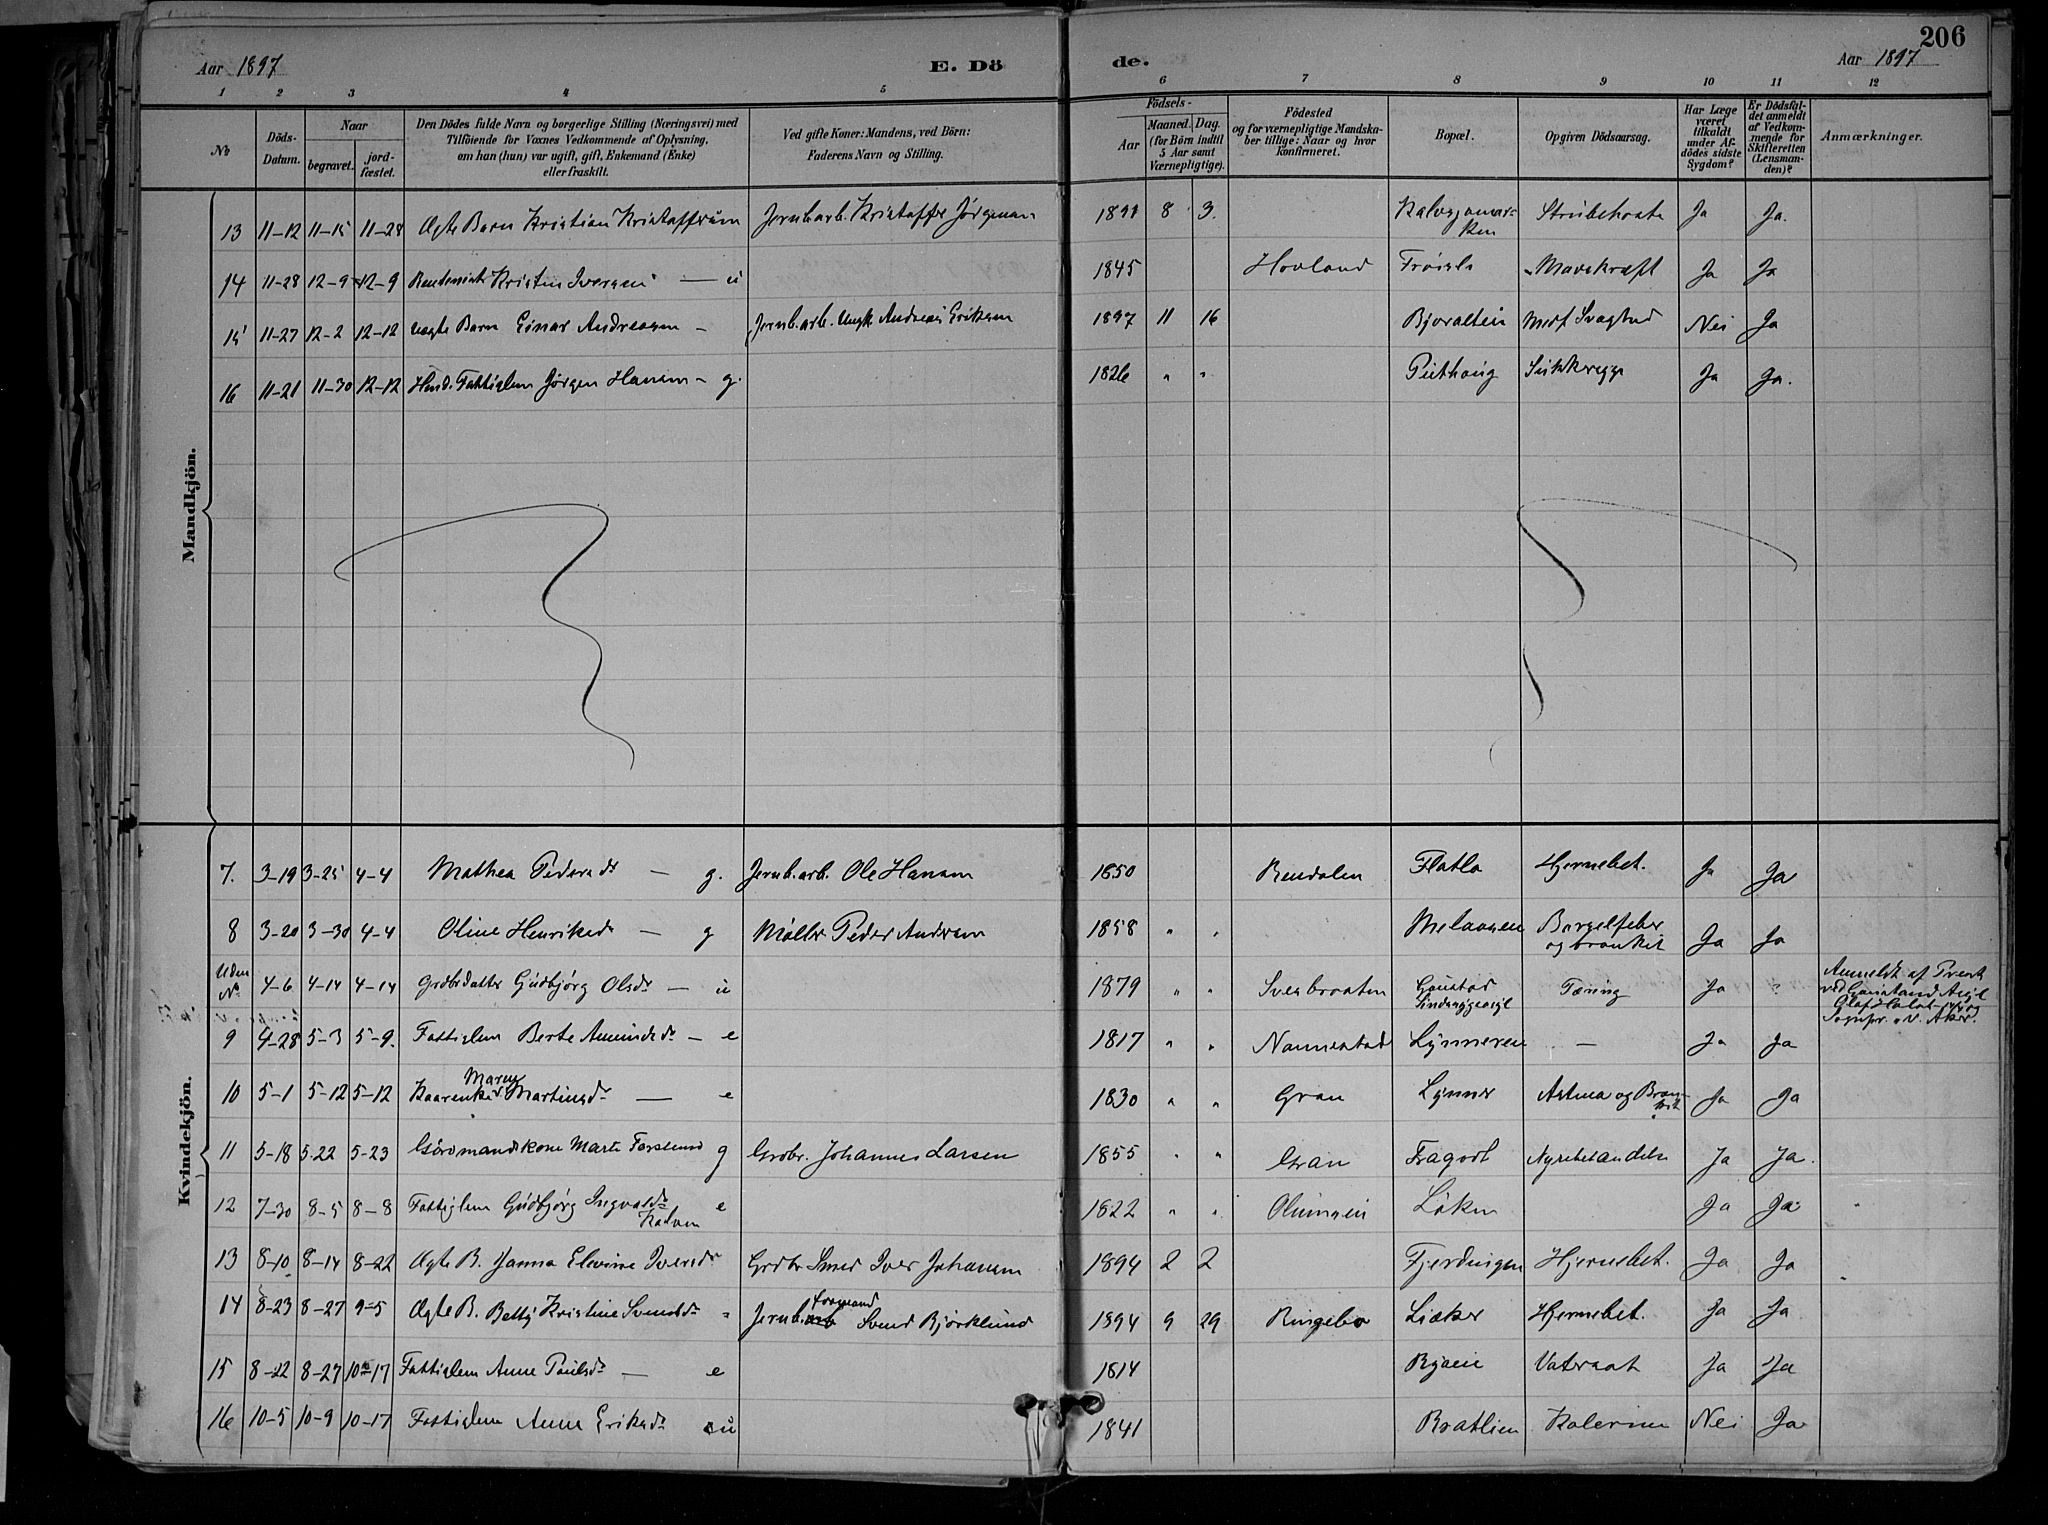 206
Aar 1897 E. Dö de. Aar 1897
1 2 3 4 5 6 7 8 9 10 11 12
No
Döds-Datum.
Naar
begravet.
jord-fæstet.
Den Dödes fulde Navn og borgerlige Stilling (Næringsvei) med
Tilföiende for Voxnes Vedkommende af Oplysning,
om han (hun) var ugift, gift, Enkemand (Enke)
eller fraskilt.
Ved gifte Koner: Mandens, ved Börn:
Faderens Navn og Stilling.
Födsels-
Aar
Maaned. Dag.
(for Börn indtil
5 Aar samt
Værnepligtige).
Födested
og for værnepligtige Mandska-
ber tillige: Naar og hvor
konfirmeret.
Bopæl.
Opgiven Dödsaarsag.
Har Læge
været
tilkaldt
under Af-
dödes sidste
Sygdom?
Er Dödsfal-
det anmeldt
af Vedkom-
mende for
Skifteretten
(Lensman-
den)?
Anmærkninger.
Mandkjön.
13 11-12 11-15 11-28 Ægte Barn Kristian Kristoffersen Jernb.arb. Kristoffer Jørgensen 1891 8 3 Strubehoste Ja Ja.
14 11-28 12-9 12-9 Kristin Iversen — u 1845 Hovland Mavekræft Ja Ja
15 11-27 12-2 12-12 uægte Barn Einar Andreasen — Jernb.arb. Ungk. Andreas Eriksen 1897 11 16 Bjoralien Medf. Svaghed Nei Ja
16 11-21 11-30 12-12 Fattiglem Jørgen Hansen — g. 1826 " " Ja Ja.
Kvindekjön.
7. 3-19 3-25 4-4 Mathea Pedersdr — g. Jernb.arb. Ole Hansen 1850 Rendalen Flatla Hjernebet. Ja Ja
8 3-20 3-30 4-4 Oline Henriksdr — g Møller Peder Andersen 1858 " " Melaasen Barselfeber
og bronkit Ja Ja
Uden
No 4-6 4-14 4-14 Grdbrdatter Gudbjørg Olsdr — u 1879 " " Sveabraaten Gaustad
Sindssygeasyl Tæring Ja " Anmeldt af Prest
ved Gaustad Asyl
Sognepr. v. V. Aker.
9 4-28 5-3 5-9. Fattiglem Berte Amundsdr — e 1817 " " Nannestad Lynneren — Ja Ja
10 5-1 5-12 5-12 Maren
Martinsdr — e 1830 " " Gran Lynner Astma og Bron-
kit Ja Ja
11 5-18 5-22 5-23 Gårdmandskone Marte g Grdbr. Johannes Larsen 1855 " " Gran Nyrebetændelse Ja Ja.
12 7-30 8-5 8-8 Fattiglem Gudbjørg Ingvoldsdr e 1822 " " Løken Ja Ja "
13 8-10 8-14 8-22 Ægte B. Hanna Elevine Iversdr Grdbr Smed Iver Johansen 1894 2 2 Fjerdingen Hjernebet. Ja Ja "
14 8-23 8-27 9-5 Ægte B. Betty Kristine Svendsdr " Jernb.formand Svend Bjørklund 1894 9 29 Ringebo Liaker Hjernebet. Ja Ja
15 8-22 8-27 10-17 Fattiglem Anne Paulsdr — e 1814 Vatersot Ja Ja
16 10-5 10-9 10-17 Fattiglem Anne Eriksdr u 1841 Bratlien Kolerine Nei Ja